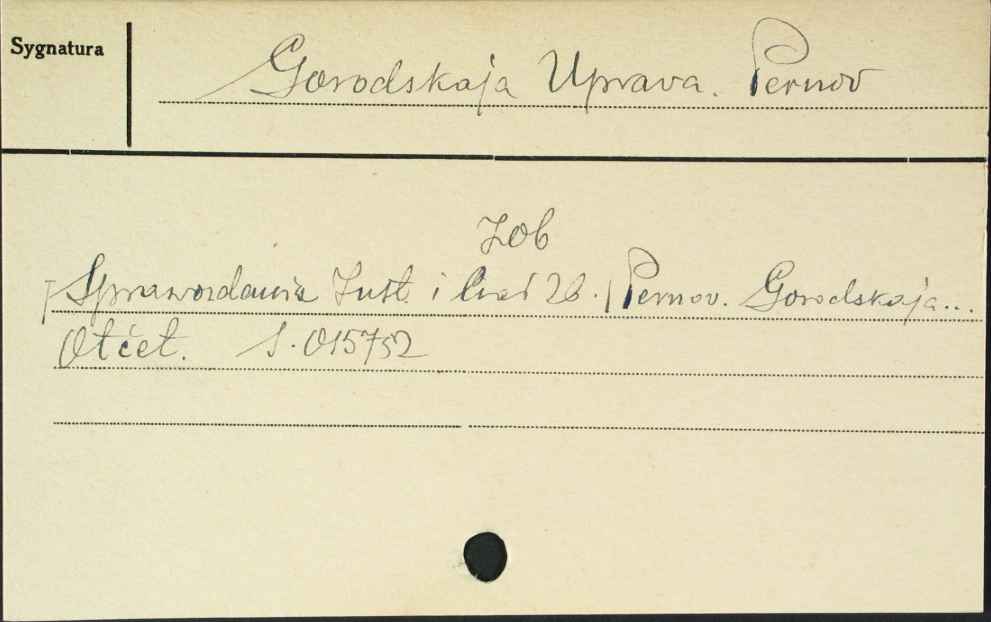 Sygnatura
Gorodskaja Uprava. Pernov
Zob
Sprawozdania Inst. i 26. Pernov. Gorodskaja...
Otčet. S. 015752